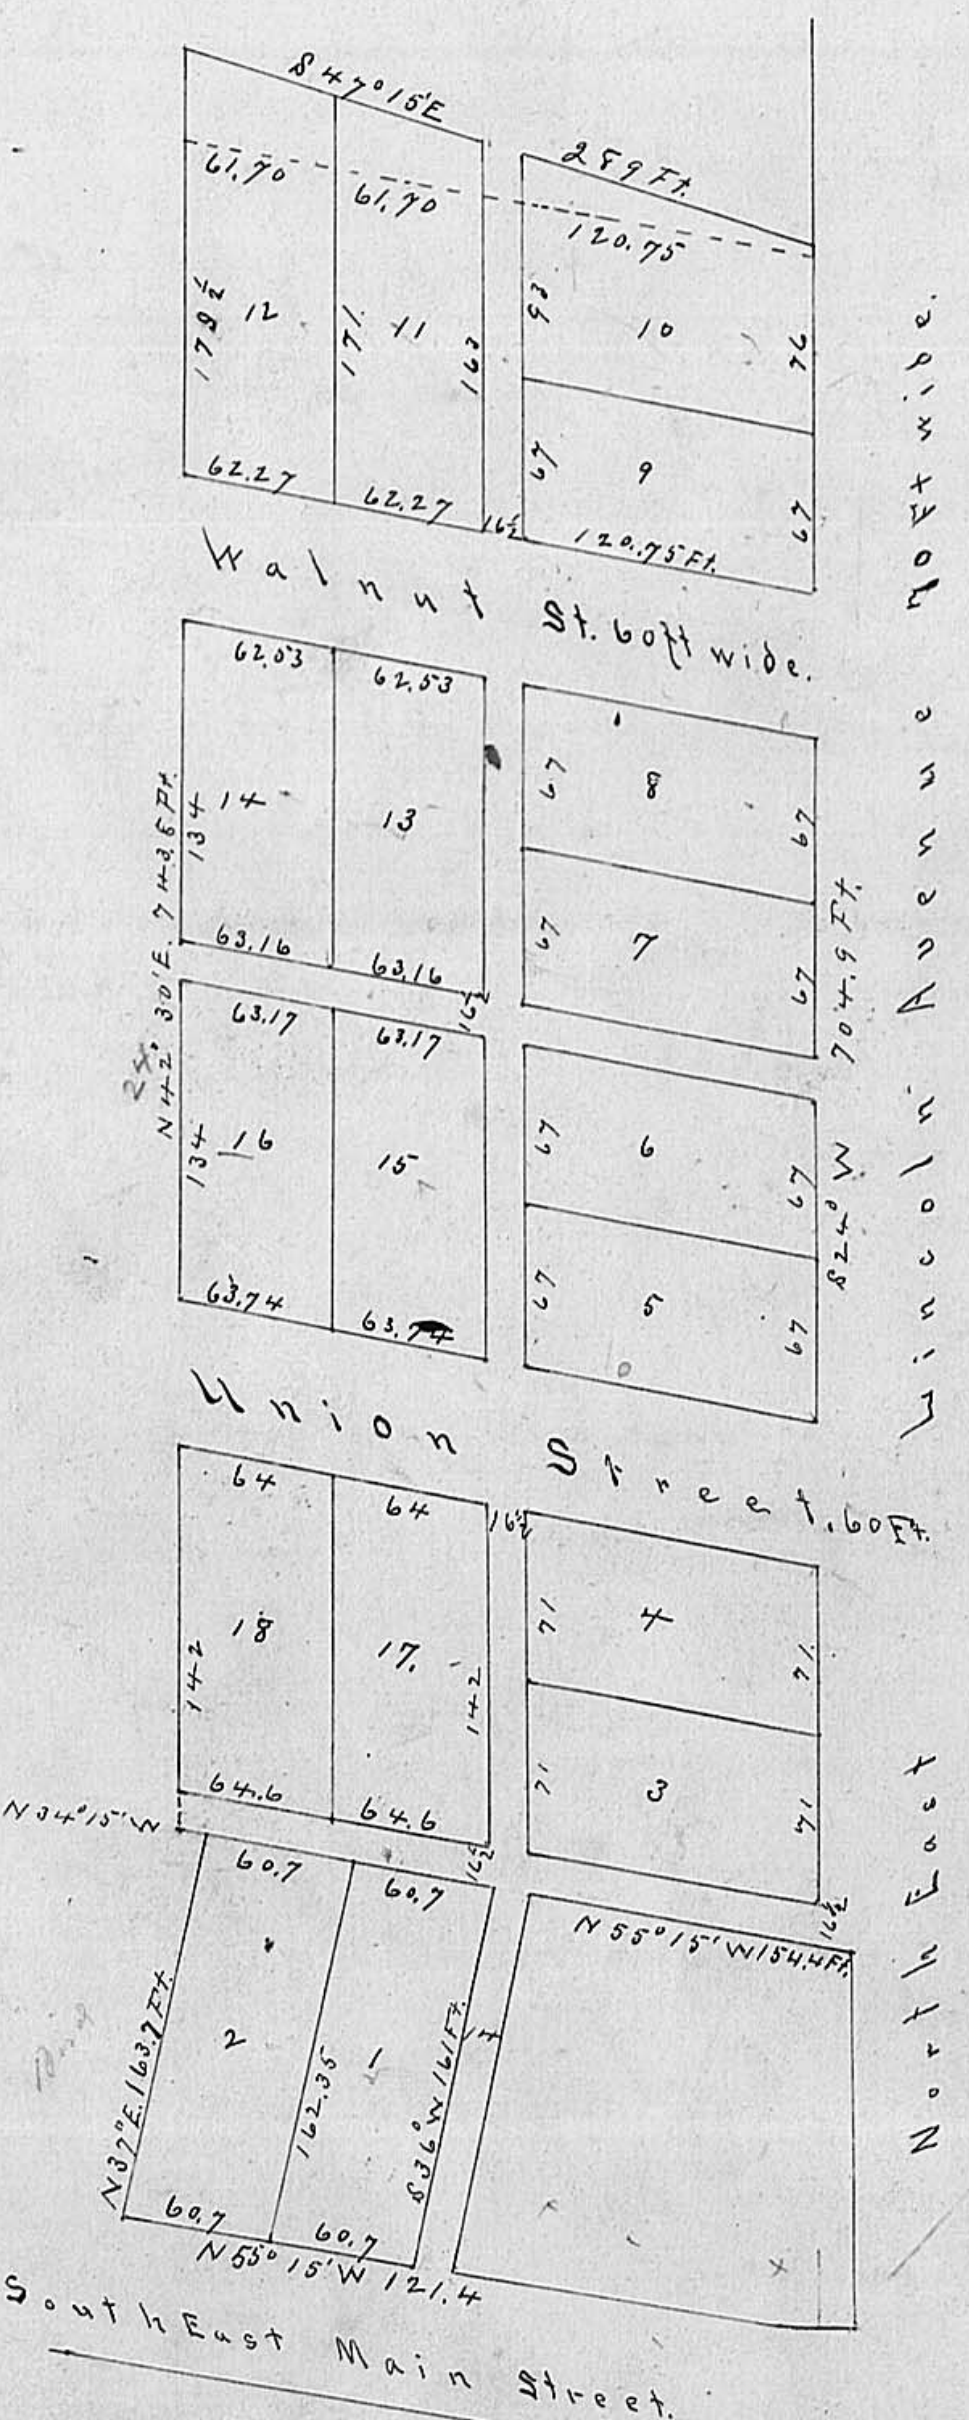 S 47° 15' E
289 Ft.
61.70
61.70
120.75
179 1/2
12
171.
11
163
93
10
76
67
9
67
62.27
62.27
16 1/2
120.75 Ft.
Walnut St. 60 ft wide.
62.53
62.53
134
14
13
67
8
67
67
7
67
63.16
63.16
16 1/2
N 42° 30' E. 743.5 Ft.
24
704.9 Ft.
S 24° W
63.17
63.17
134
16
15
67
6
67
67
5
67
63.74
63.74
Union Street. 60 Ft.
64
64
16 1/2
142
18
17.
142
71
4
71.
71
3
71
64.6
64.6
N 34° 15' W
16 1/2
16 1/2
60.7
60.7
N 55° 15' W 154.4 Ft.
N 37° E. 163.7 Ft.
2
162.35
1
S 36° W 161 Ft.
17
60.7
60.7
N 55° 15' W 121.4
South East Main Street.
North East Lincoln Avenue 70 Ft wide.